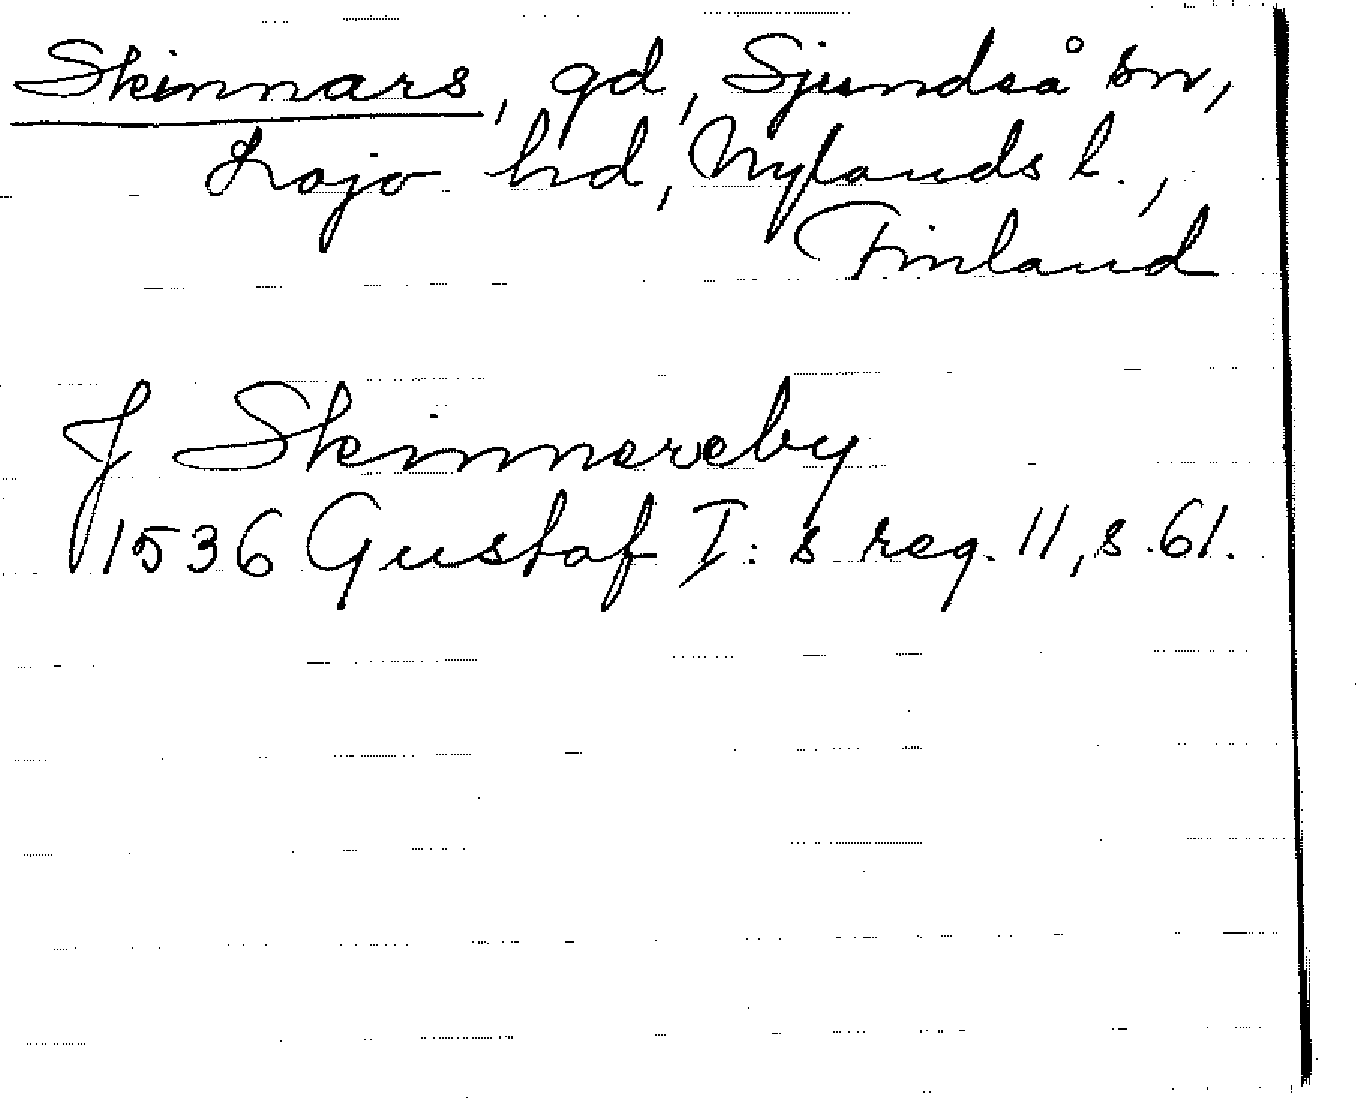 Skinnars, gd, Sjundeå sn,
Lojo hd, Nylands l.,
Finland
J Skinnereby
1536 Gustaf I:s reg. 11, s. 61.